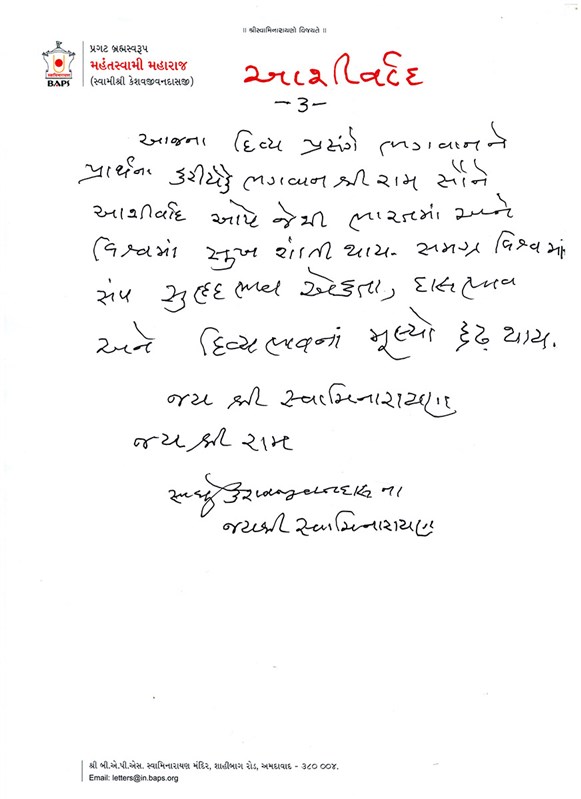 ॥ શ્રીસ્વામિનારાયણો વિજયતે ॥
પ્રગટ બ્રહ્મસ્વરૂપ
મહંતસ્વામી મહારાજ
(સ્વામીશ્રી કેશવજીવનદાસજી)
BAPS
આશીર્વાદ
-૩-
આજના દિવ્ય પ્રસંગે ભગવાનને
પ્રાર્થના કરીએકે ભગવાન શ્રી રામ સૌને
આશીર્વાદ આપે જેથી ભારતમાં અને
વિશ્વમાં સુખ શાંતી થાય. સમગ્ર વિશ્વમાં
સંપ સુહૃદભાવ એકતા, દાસભાવ
અને દિવ્યભાવનાં મૂલ્યો દૃઢ થાય.
જય શ્રી સ્વામિનારાયણ
જય શ્રી રામ
સાધુ કેશવજીવનદાસ ના
જયશ્રી સ્વામિનારાયણ
શ્રી બી.એ.પી.એસ. સ્વામિનારાયણ મંદિર, શાહીબાગ રોડ, અમદાવાદ - ૩૮૦ ૦૦૪.
Email: letters@in.baps.org